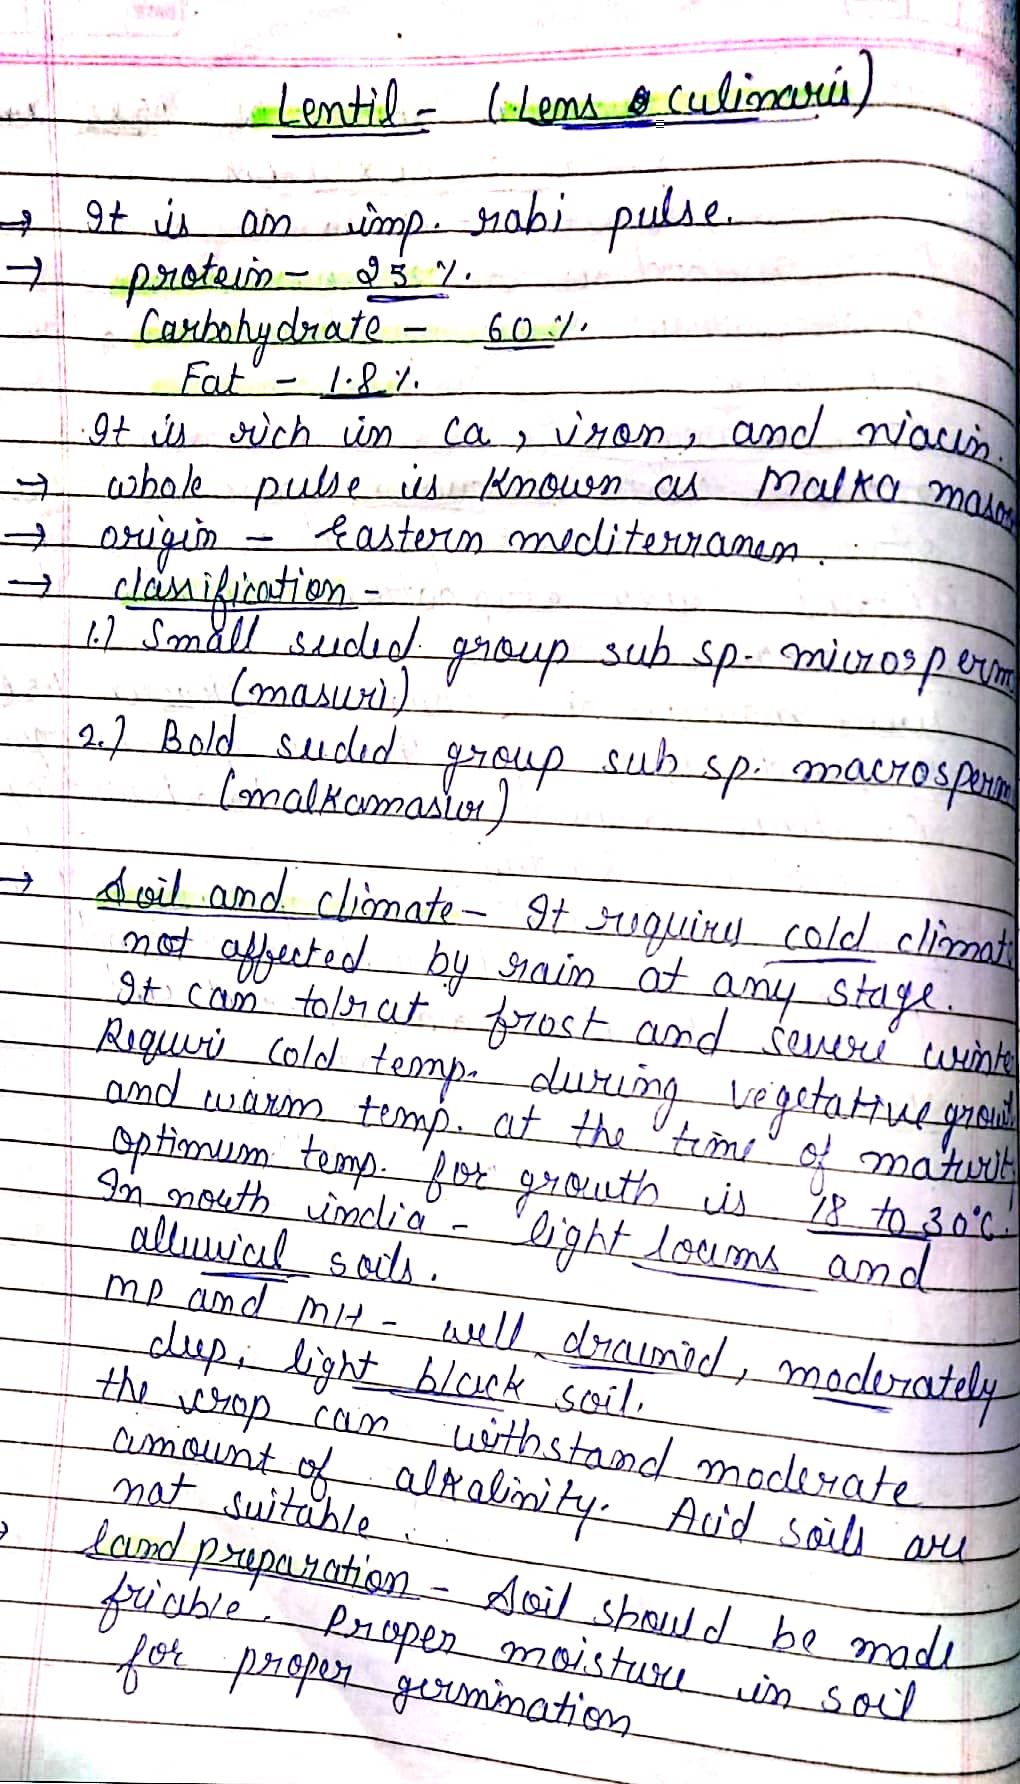 Lentil - (Lens culinaris)
→ It is an imp. rabi pulse.
→ protein - 25 %.
Carbohydrate - 60 %.
Fat - 1.8 %.
It is rich in ca, iron, and niacin.
→ whole pulse is known as Malka masoor
→ origin - Eastern mediterranen.
→ classification -
1.) Small seeded group sub sp. microsperm
(masuri)
2.) Bold seeded group sub sp. macrosperm
(malkamasur)
→ Soil and climate - It requires cold climat
not affected by rain at any stage.
It can tolrat frost and severe winte
Requir cold temp. during vegetative growt
and warm temp. at the time of maturit
optimum temp. for growth is 18 to 30°C.
In north india - light loams and
alluvial soils.
MP and MH - well drained, moderately
deep, light black soil.
the crop can withstand moderate
amount of alkalinity. Acid soils are
not suitable.
land preparation - Soil should be made
friable. Proper moisture in soil
for proper germination